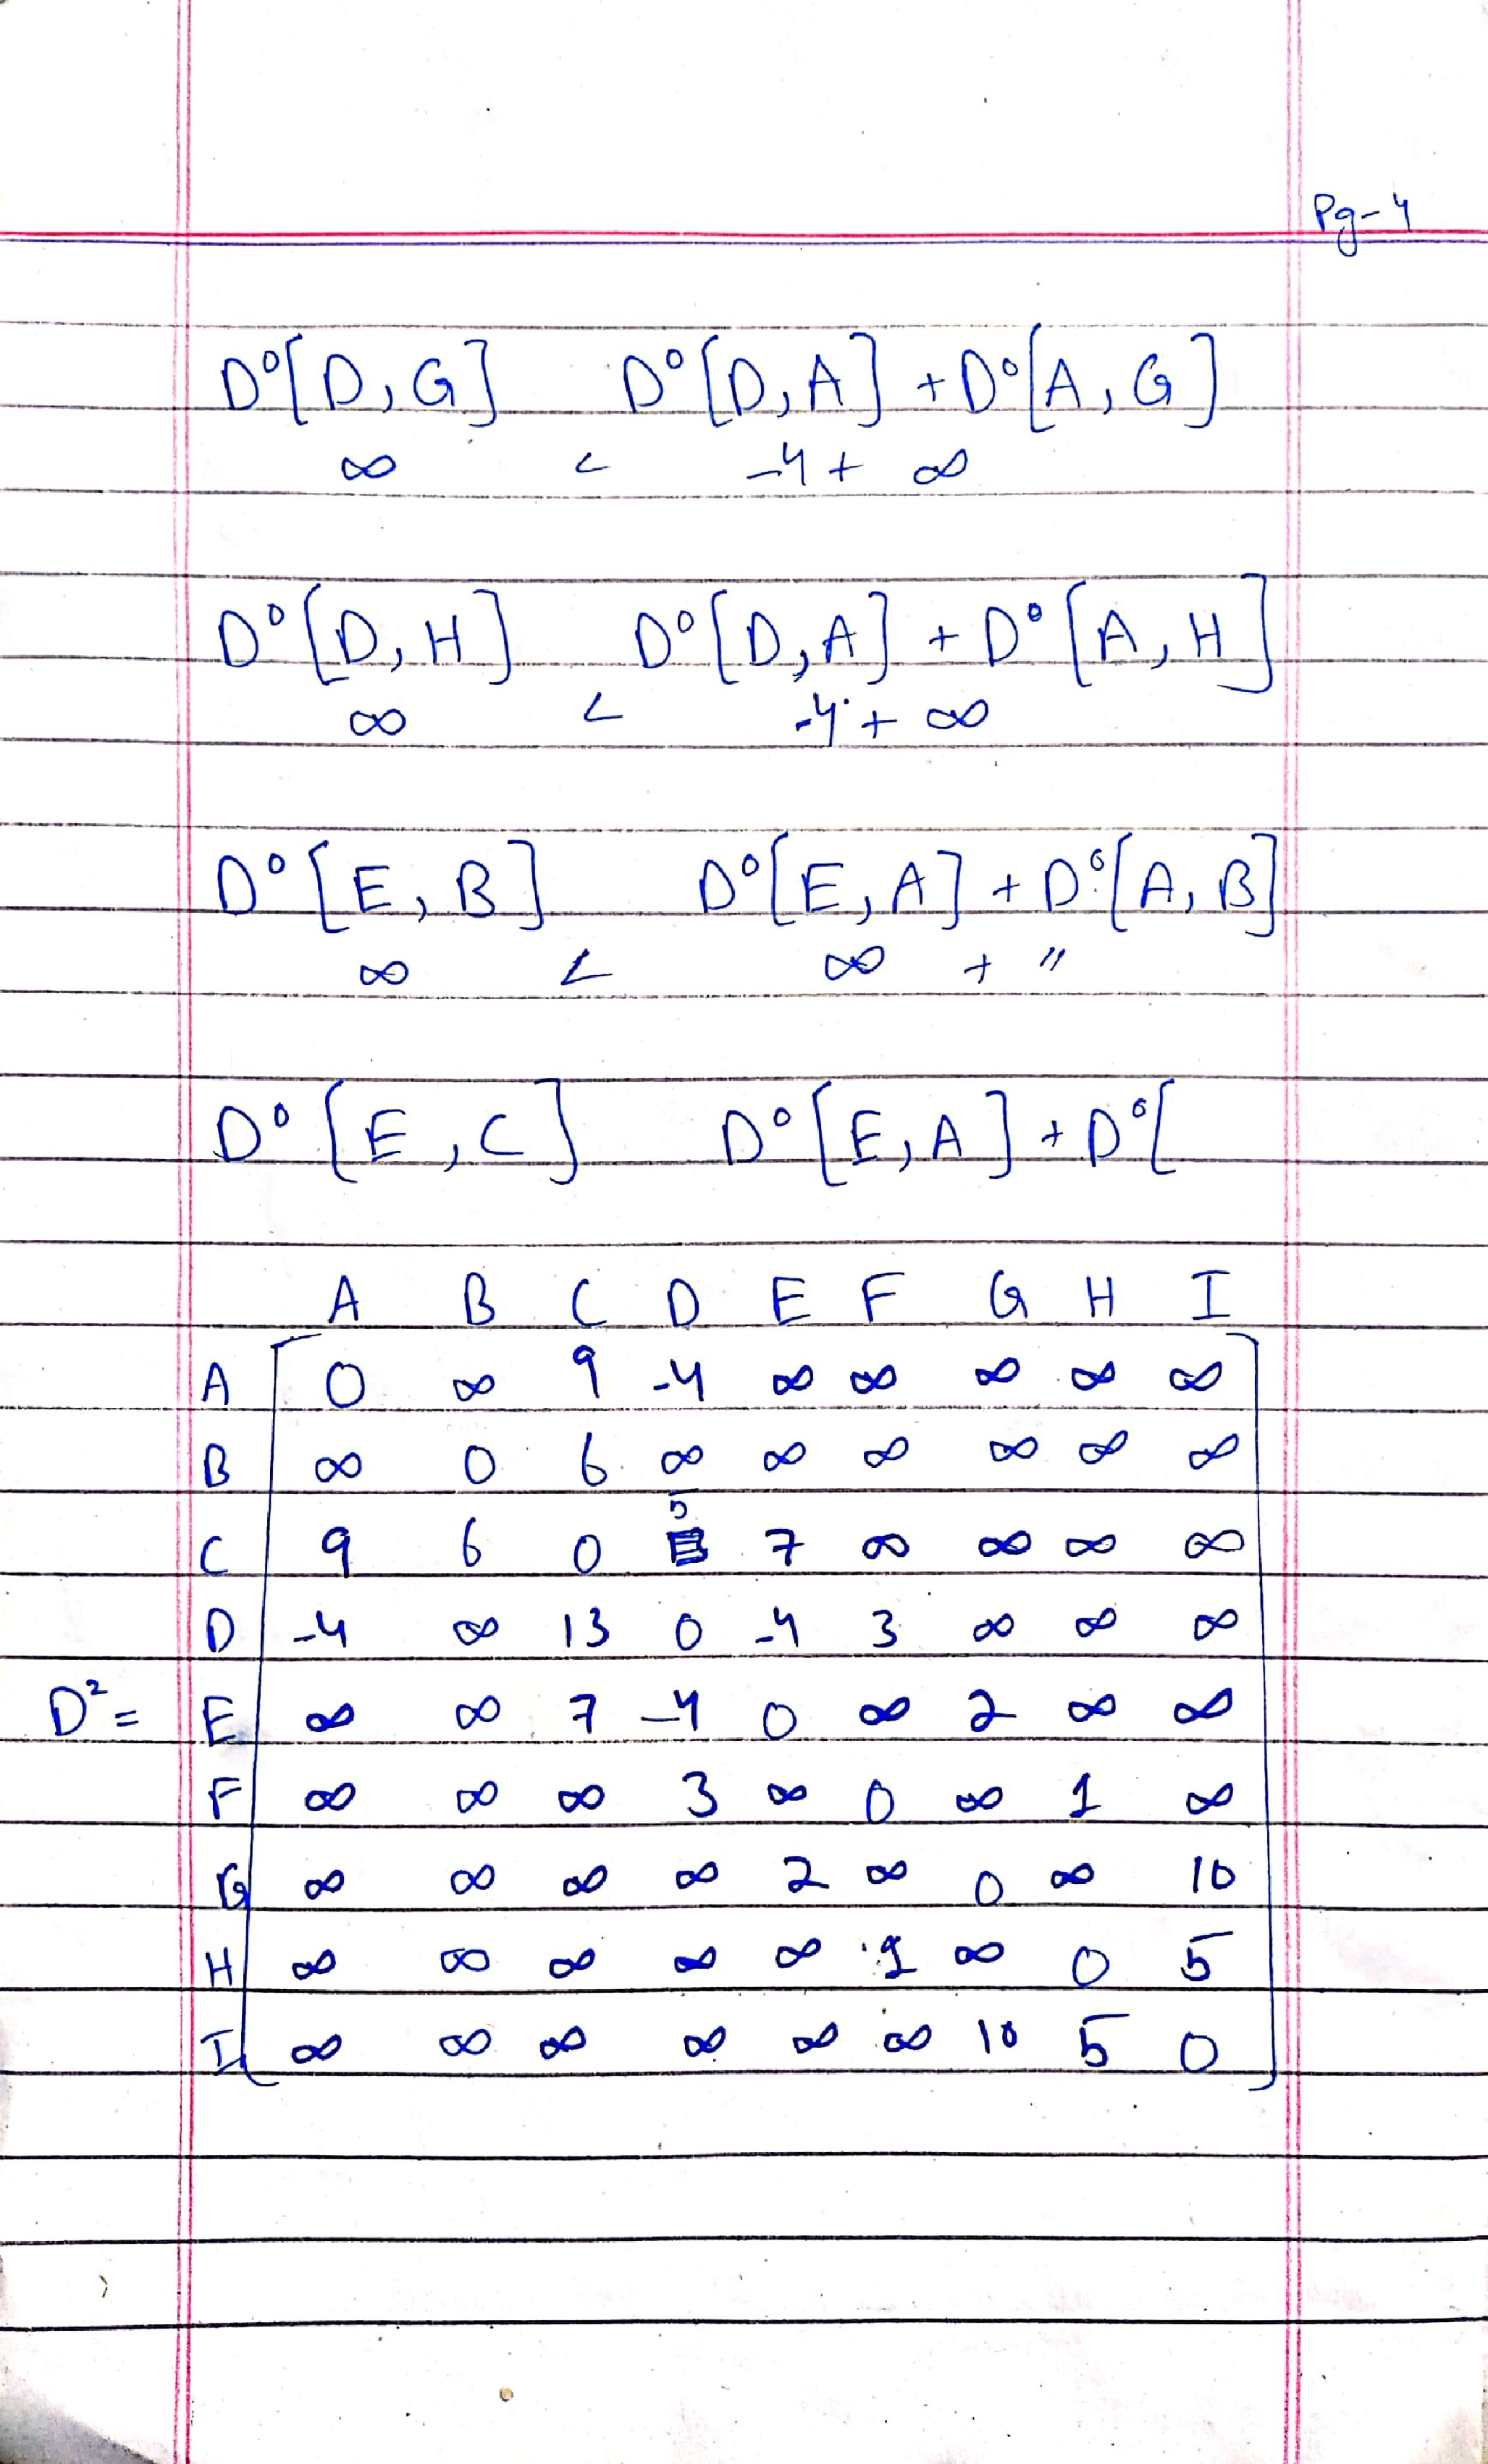 Pg-4
D⁰[D,G] D⁰[D,A] + D⁰[A,G]
∞ < -4 + ∞
D⁰[D,H] D⁰[D,A] + D⁰[A,H]
∞ < -4 + ∞
D⁰[E,B] D⁰[E,A] + D⁰[A,B]
∞ < ∞ + "
D⁰[E,C] D⁰[E,A] + D⁰[
A B C D E F G H I
A 0 ∞ 9 -4 ∞ ∞ ∞ ∞ ∞
B ∞ 0 6 ∞ ∞ ∞ ∞ ∞ ∞
5
C 9 6 0 7 ∞ ∞ ∞ ∞
D -4 ∞ 13 0 -4 3 ∞ ∞ ∞
D² = E ∞ ∞ 7 -4 0 ∞ 2 ∞ ∞
F ∞ ∞ ∞ 3 ∞ 0 ∞ 1 ∞
G ∞ ∞ ∞ ∞ 2 ∞ 0 ∞ 10
H ∞ ∞ ∞ ∞ ∞ 1 ∞ 0 5
I ∞ ∞ ∞ ∞ ∞ ∞ 10 5 0